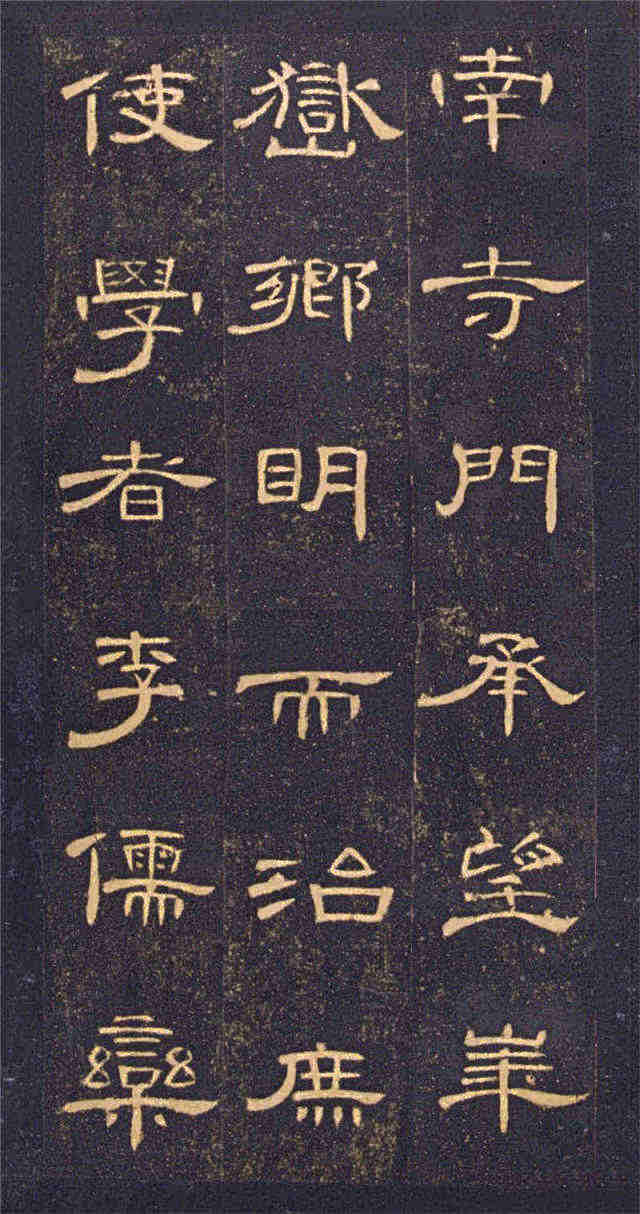 南寺門承望華
嶽鄉眀而治庶
使學者李儒欒